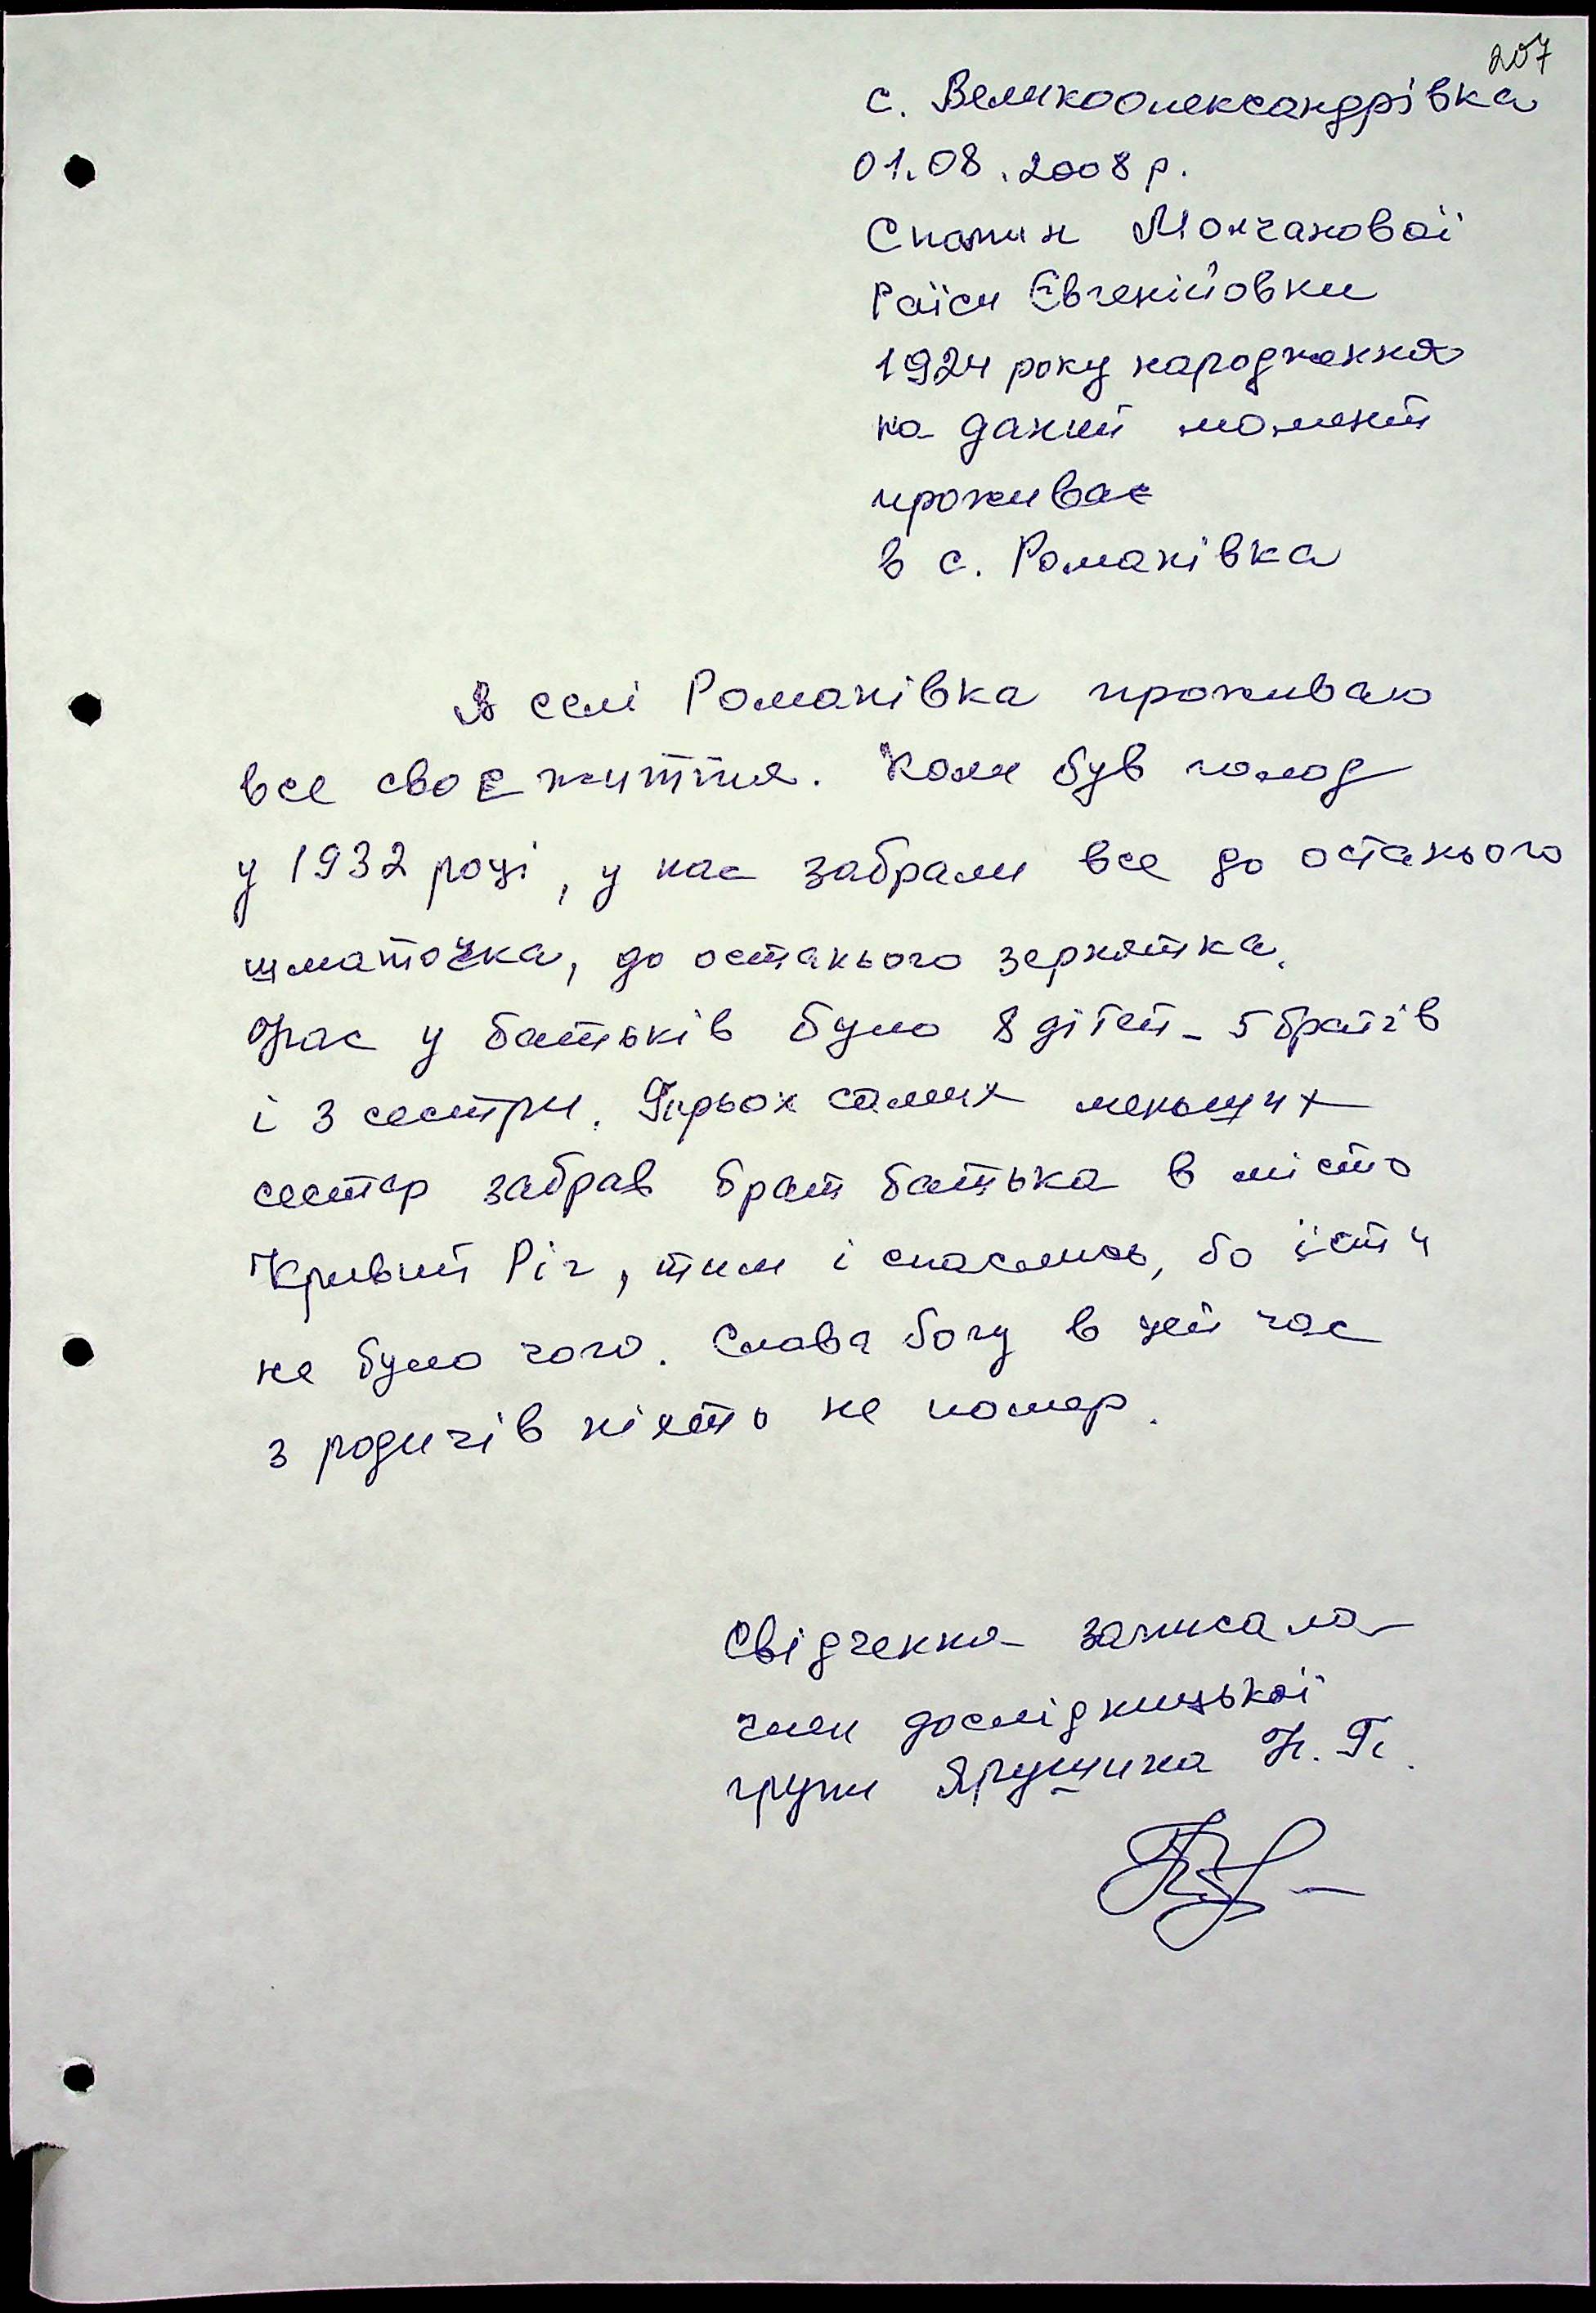 207
с. Великоолександрівка
01.08.2008 р.
Спомин Молчанової
Раїси Євгеніївовни
1924 року народження
на даний момент
проживає
в с. Романівка
В селі Романівка проживаю
все своє життя. Коли був голод
у 1932 році, у нас забрали все до останього
шматочка, до останього зернятка.
Унас у батьків було 8 дітей - 5 братів
і 3 сестри. Трьох самих меньших
сестер забрав брат батька в місто
Кривий Ріг, тим і спаслись, бо їсти
не було чого. Слава богу в цей час
з родичів ніхто не помер.
Свідчення записала
член дослідницької
групи Ярушина Н. П.